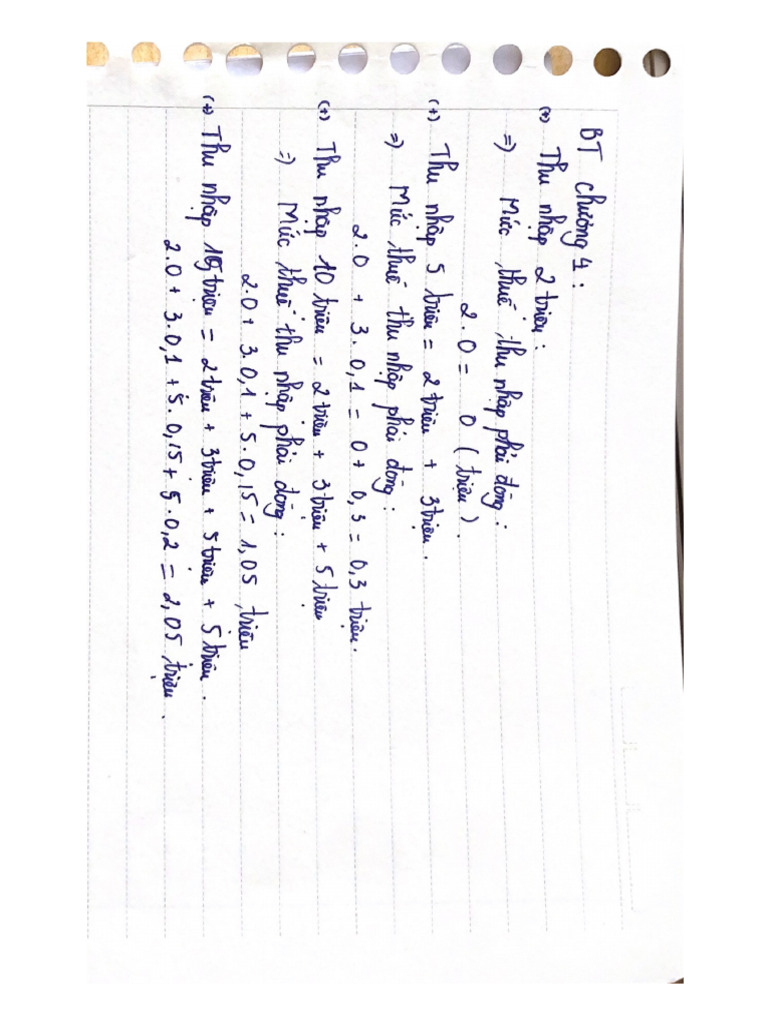 BT chương 1 :
(+) Thu nhập 2 triệu :
=) Mức thuế thu nhập phải đóng :
2.0 = 0 ( triệu ) .
(+) Thu nhập 5 triệu = 2 triệu + 3 triệu .
=) Mức thuế thu nhập phải đóng :
2.0 + 3.0,1 = 0 + 0,3 = 0,3 triệu.
(+) Thu nhập 10 triệu = 2 triệu + 3 triệu + 5 triệu
=) Mức thuế thu nhập phải đóng :
2.0 + 3.0,1 + 5.0,15 = 1,05 triệu
(+) Thu nhập 15 triệu = 2 triệu + 3 triệu + 5 triệu + 5 triệu .
2.0 + 3.0,1 + 5.0,15 + 5.0,2 = 2,05 triệu .